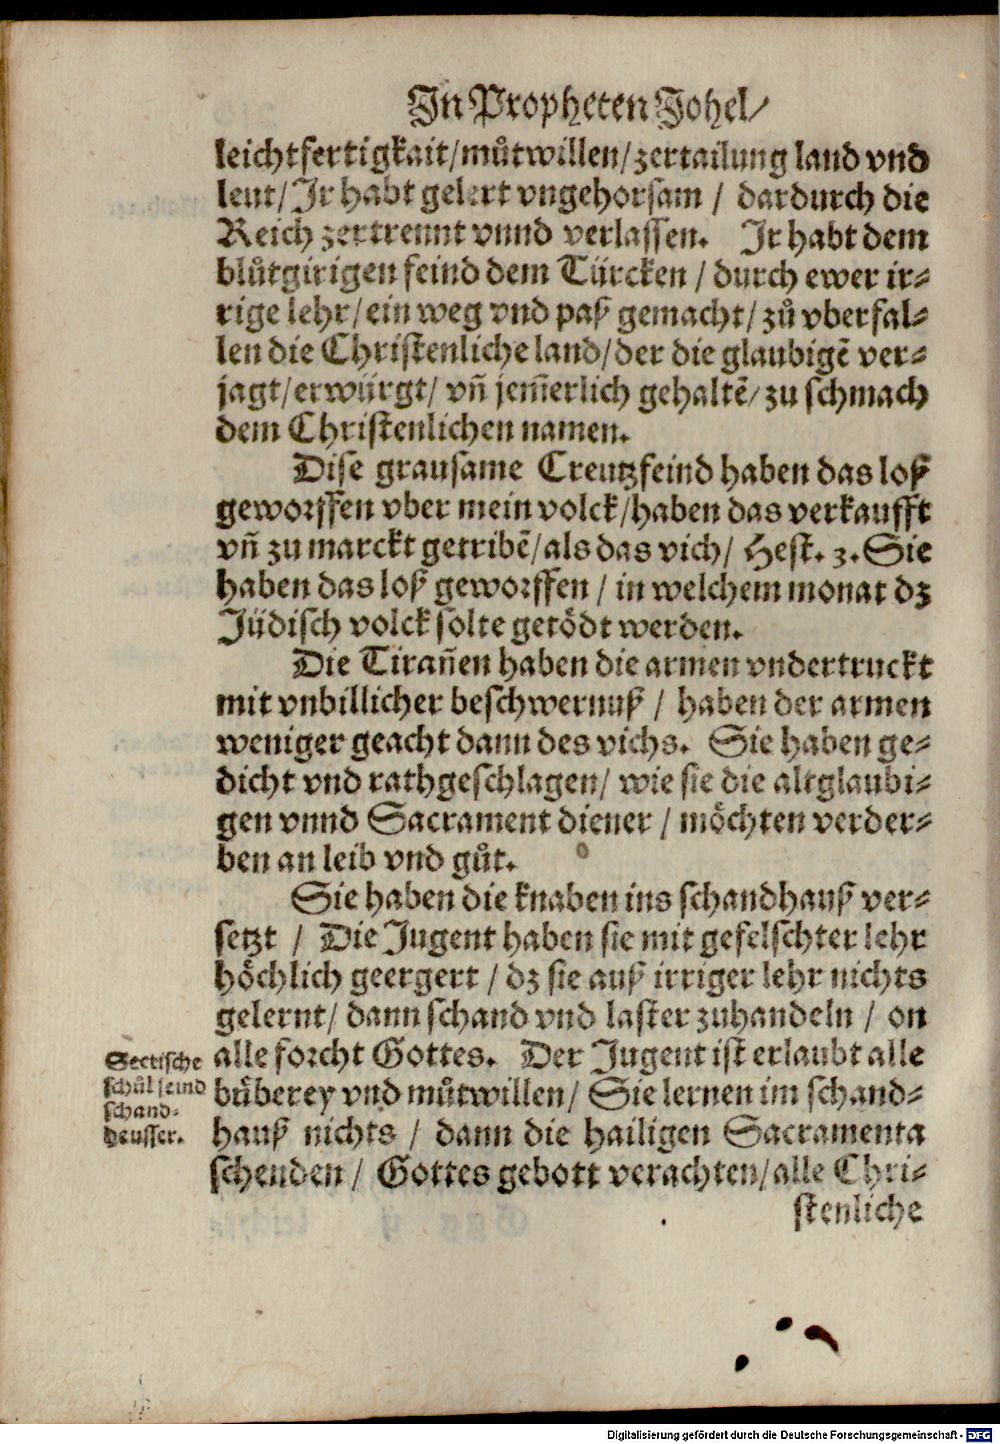 In Propheten Johel/
leichtfertigkait/můtwillen/zertailung land vnd
leut/Ir habt gelert vngehorsam / dardurch die
Reich zertrennt vnnd verlassen. Ir habt dem
blůtgirigen feind dem Türcken / durch ewer ir-
rige lehr/ein weg vnd paß gemacht/zů vberfal-
len die Christenliche land/der die glaubigē ver-
jagt/erwürgt/ vñ jem̃erlich gehaltē/zu schmach
dem Christenlichen namen.
Dise grausame Creutzfeind haben das loß
geworffen vber mein volck/haben das verkaufft
vñ zu marckt getribē/als das vich/ Hest. 3. Sie
haben das loß geworffen / in welchem monat dz
Jüdisch volck solte getödt werden.
Die Tirañen haben die armen vndertruckt
mit vnbillicher beschwernuß / haben der armen
weniger geacht dann des vichs. Sie haben ge-
dicht vnd rathgeschlagen/ wie sie die altglaubi-
gen vnnd Sacrament diener / möchten verder-
ben an leib vnd gůt.
Sie haben die knaben ins schandhauß ver-
setzt / Die Jugent haben sie mit gefelschter lehr
höchlich geergert / dz sie auß irriger lehr nichts
gelernt/ dann schand vnd laster zuhandeln / on
alle forcht Gottes. Der Jugent ist erlaubt alle
bůberey vnd můtwillen/ Sie lernen im schand-
hauß nichts / dann die hailigen Sacramenta
schenden / Gottes gebott verachten/alle Chri-
stenliche
Sectische
schůl seind
schand-
heusser.
Digitalisierung gefördert durch die Deutsche Forschungsgemeinschaft - DFG